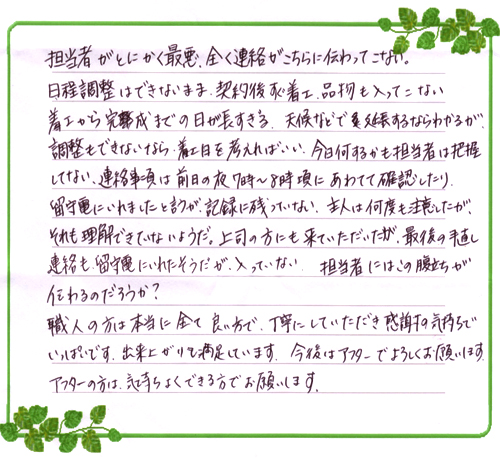 担当者がとにかく最悪、全く連絡がこちらに伝わってこない。
日程調整はできないまま、契約後すぐ着工、品物も入ってこない
着工から完成までの日が長すぎる、天候などで延長するならわかるが、
調整もできないなら、着工日を考えればいい、今日何するかも担当者は把握
してない、連絡事項は前日の夜7時〜8時頃にあわてて確認したり、
留守電にいれましたと言うが、記録に残っていない、主人は何度も注意したが、
それも理解できていないようだ。上司の方にも来ていただいたが、最後の手直し
連絡も、留守電にいれたそうだが、入っていない、担当者にはこの腹立ちが
伝わるのだろうか?
職人の方は本当に全て良い方で、丁寧にしていただき感謝の気持ちで
いっぱいです。出来上がりも満足しています。今後はアフターでよろしくお願いします。
アフターの方は、気持ちよくできる方でお願いします。